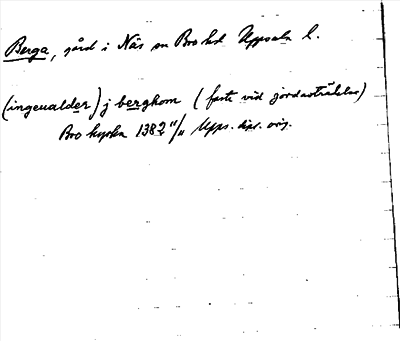 Berga, gård i Näs sn Bro hd Uppsala l.
(ingeualder) j berghom (faste vid jordaöverlåtelse)
Bro kyrka 1382 11/11 Upps. dipl. orig.